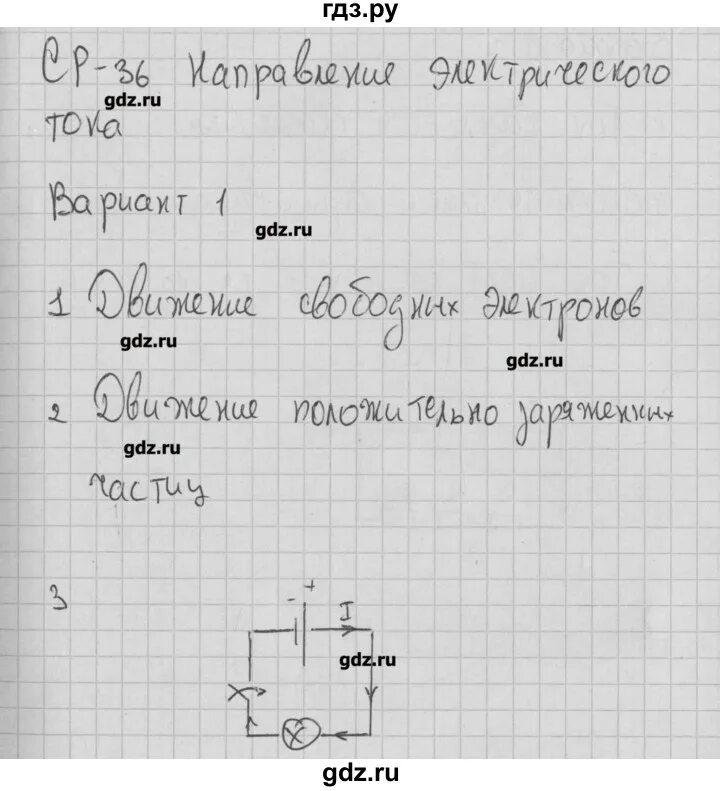 гдз.ру
СР-36 Направление электрического
gdz.ru
тока
Вариант 1
gdz.ru
1 Движение свободных электронов
gdz.ru
gdz.ru
2 Движение положительно заряженных
gdz.ru
частиц
3
- +
I
gdz.ru
gdz.ru